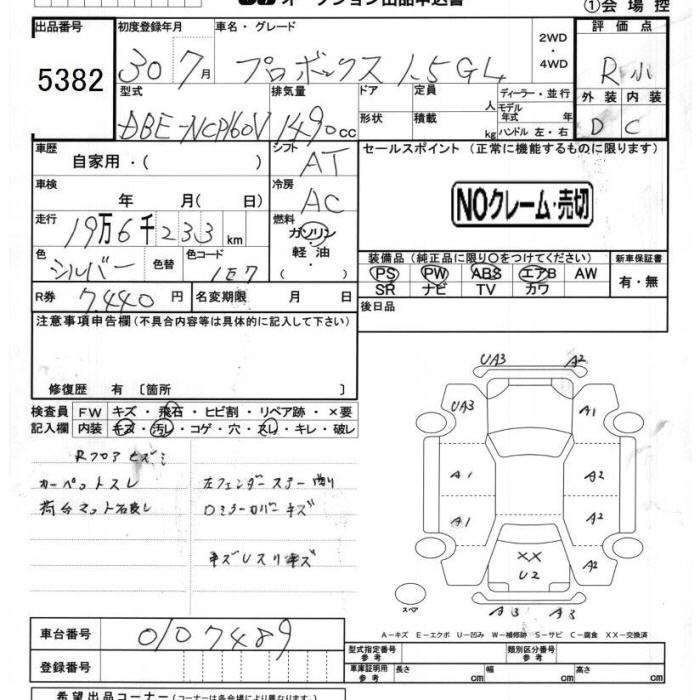 オークション出品申込書
①会場控
出品番号 初度登録年月 車名・グレード 2WD・4WD 評価点
5382 30 7月 プロボックス 1.5GL R小
型式 排気量 ドア 定員 人 ディーラー・並行 外装 内装
DBE-NCP160V 1490cc 形状 積載 kg モデル年式 年 ハンドル 左・右 D C
車歴 自家用・( ) シフト AT セールスポイント (正常に機能するものに限ります)
車検 年 月( 日) 冷房 AC
NOクレーム・売切
走行 19万6千233km 燃料 ガソリン 軽油 ・( )
色 シルバー 色替 色コード 1E7
装備品 (純正品に限り〇をつけてください) 新車保証書
PS PW ABS エアB AW 有・無
SR ナビ TV カワ
R券 7,440円 名変期限 月 日 後日品
注意事項申告欄 (不具合内容等は具体的に記入して下さい)
修復歴 有 [箇所 ]
検査員記入欄 FW キズ・飛石・ヒビ割・リペア跡・×要
内装 キズ・汚レ・コゲ・穴・スレ・キレ・破レ
Rフロアヒズミ
カーペットスレ 左フェンダーステー曲り
荷台マット Dミラーカバーキズ
キズUスリキズ
UA3 A2
UA3 A1
A1 A2
A1 A2
XX
U2 A2
A3 A3
スペア
A-キズ E-エクボ U-凹み W-補修跡 S-サビ C-腐食 XX-交換済
車台番号 0107489
登録番号
型式指定番号 参考 類別区分番号 参考
車庫証明用 参考 長さ cm 幅 cm 高さ cm
希望出品コーナー (コーナーは各会場により異なります)